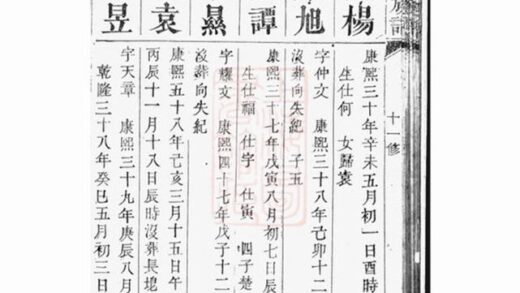 十一修
楊
旭
譚
袁
昱
康熙三十年辛未五月初一日酉時
生仕何 女歸袁
字仲文 康熙三十八年己卯十二
沒葬向失紀 子五
康熙三十七年戊寅八月初七日辰
生仕福 仕字 仕寅 四子楚
字耀文 康熙四十七年戊子十二
沒葬向失紀
康熙五十八年己亥三月十五日午
丙辰十一月十八日辰時沒葬長
字天章 康熙三十九年庚辰八月
乾隆三十八年癸巳五月初三日